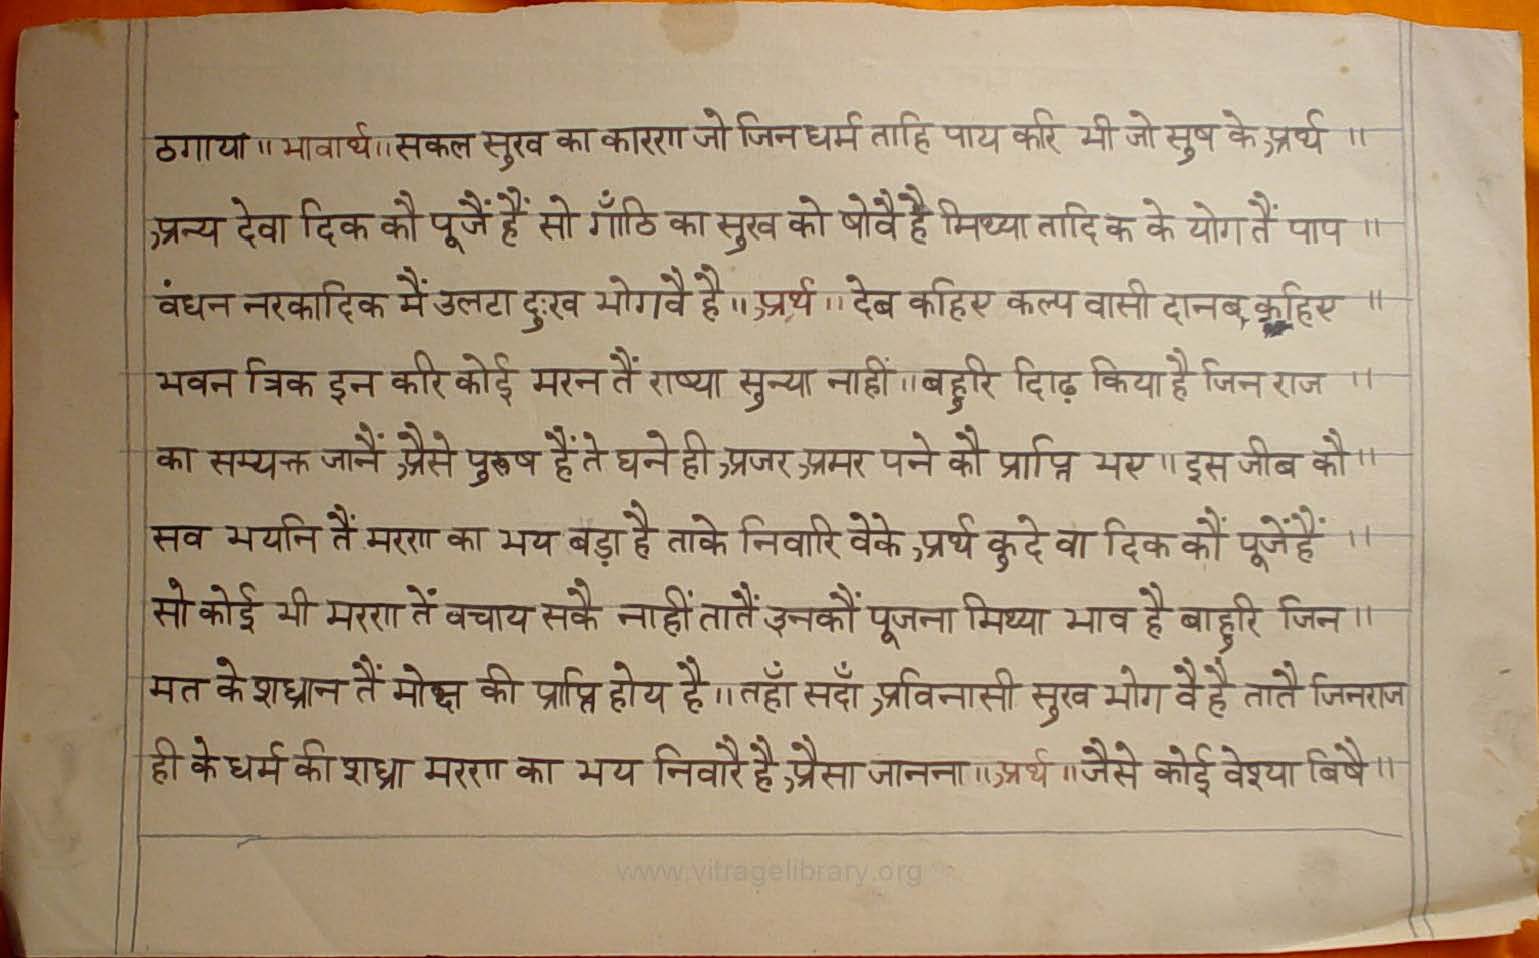 ठगाया ॥ भावार्थ ॥ सकल सुख का कारण जो जिन धर्म ताहि पाय करि भी जो सुष के अर्थ ॥
अन्य देवा दिक कौ पूजैं हैं सो गाँठि का सुख को षोवै है मिथ्या तादि क के योग तैं पाप ॥
वंधन नरकादिक मैं उलटा दुःख भोगवै है ॥ अर्थ ॥ देब कहिए कल्प वासी दानब कहिए ॥
भवन त्रिक इन करि कोई मरन तैं राष्या सुन्या नाहीं ॥ बहुरि दिढ़ किया है जिन राज ॥
का सम्यक्त जानैं अैसे पुरूष हैं ते घने ही अजर अमर पने कौ प्राप्ति भए ॥ इस जीब कौ ॥
सव भयनि तैं मरण का भय बड़ा है ताके निवारि वेके अर्थ कु दे वा दिक कौं पूजेंहैं ॥
सो कोई भी मरण तें वचाय सकै नाहीं तातैं उनकौं पूजना मिथ्या भाव है बाहुरि जिन ॥
मत के शध्रान तैं मोक्ष की प्राप्ति होय है ॥ तहाँ सदाँ अविनासी सुख भोग वै है तातै जिनराज
ही के धर्म की शध्रा मरण का भय निवारै है अैसा जानना ॥ अर्थ ॥ जैसे कोई वेश्या बिषै ॥
www.vitragelibrary.org